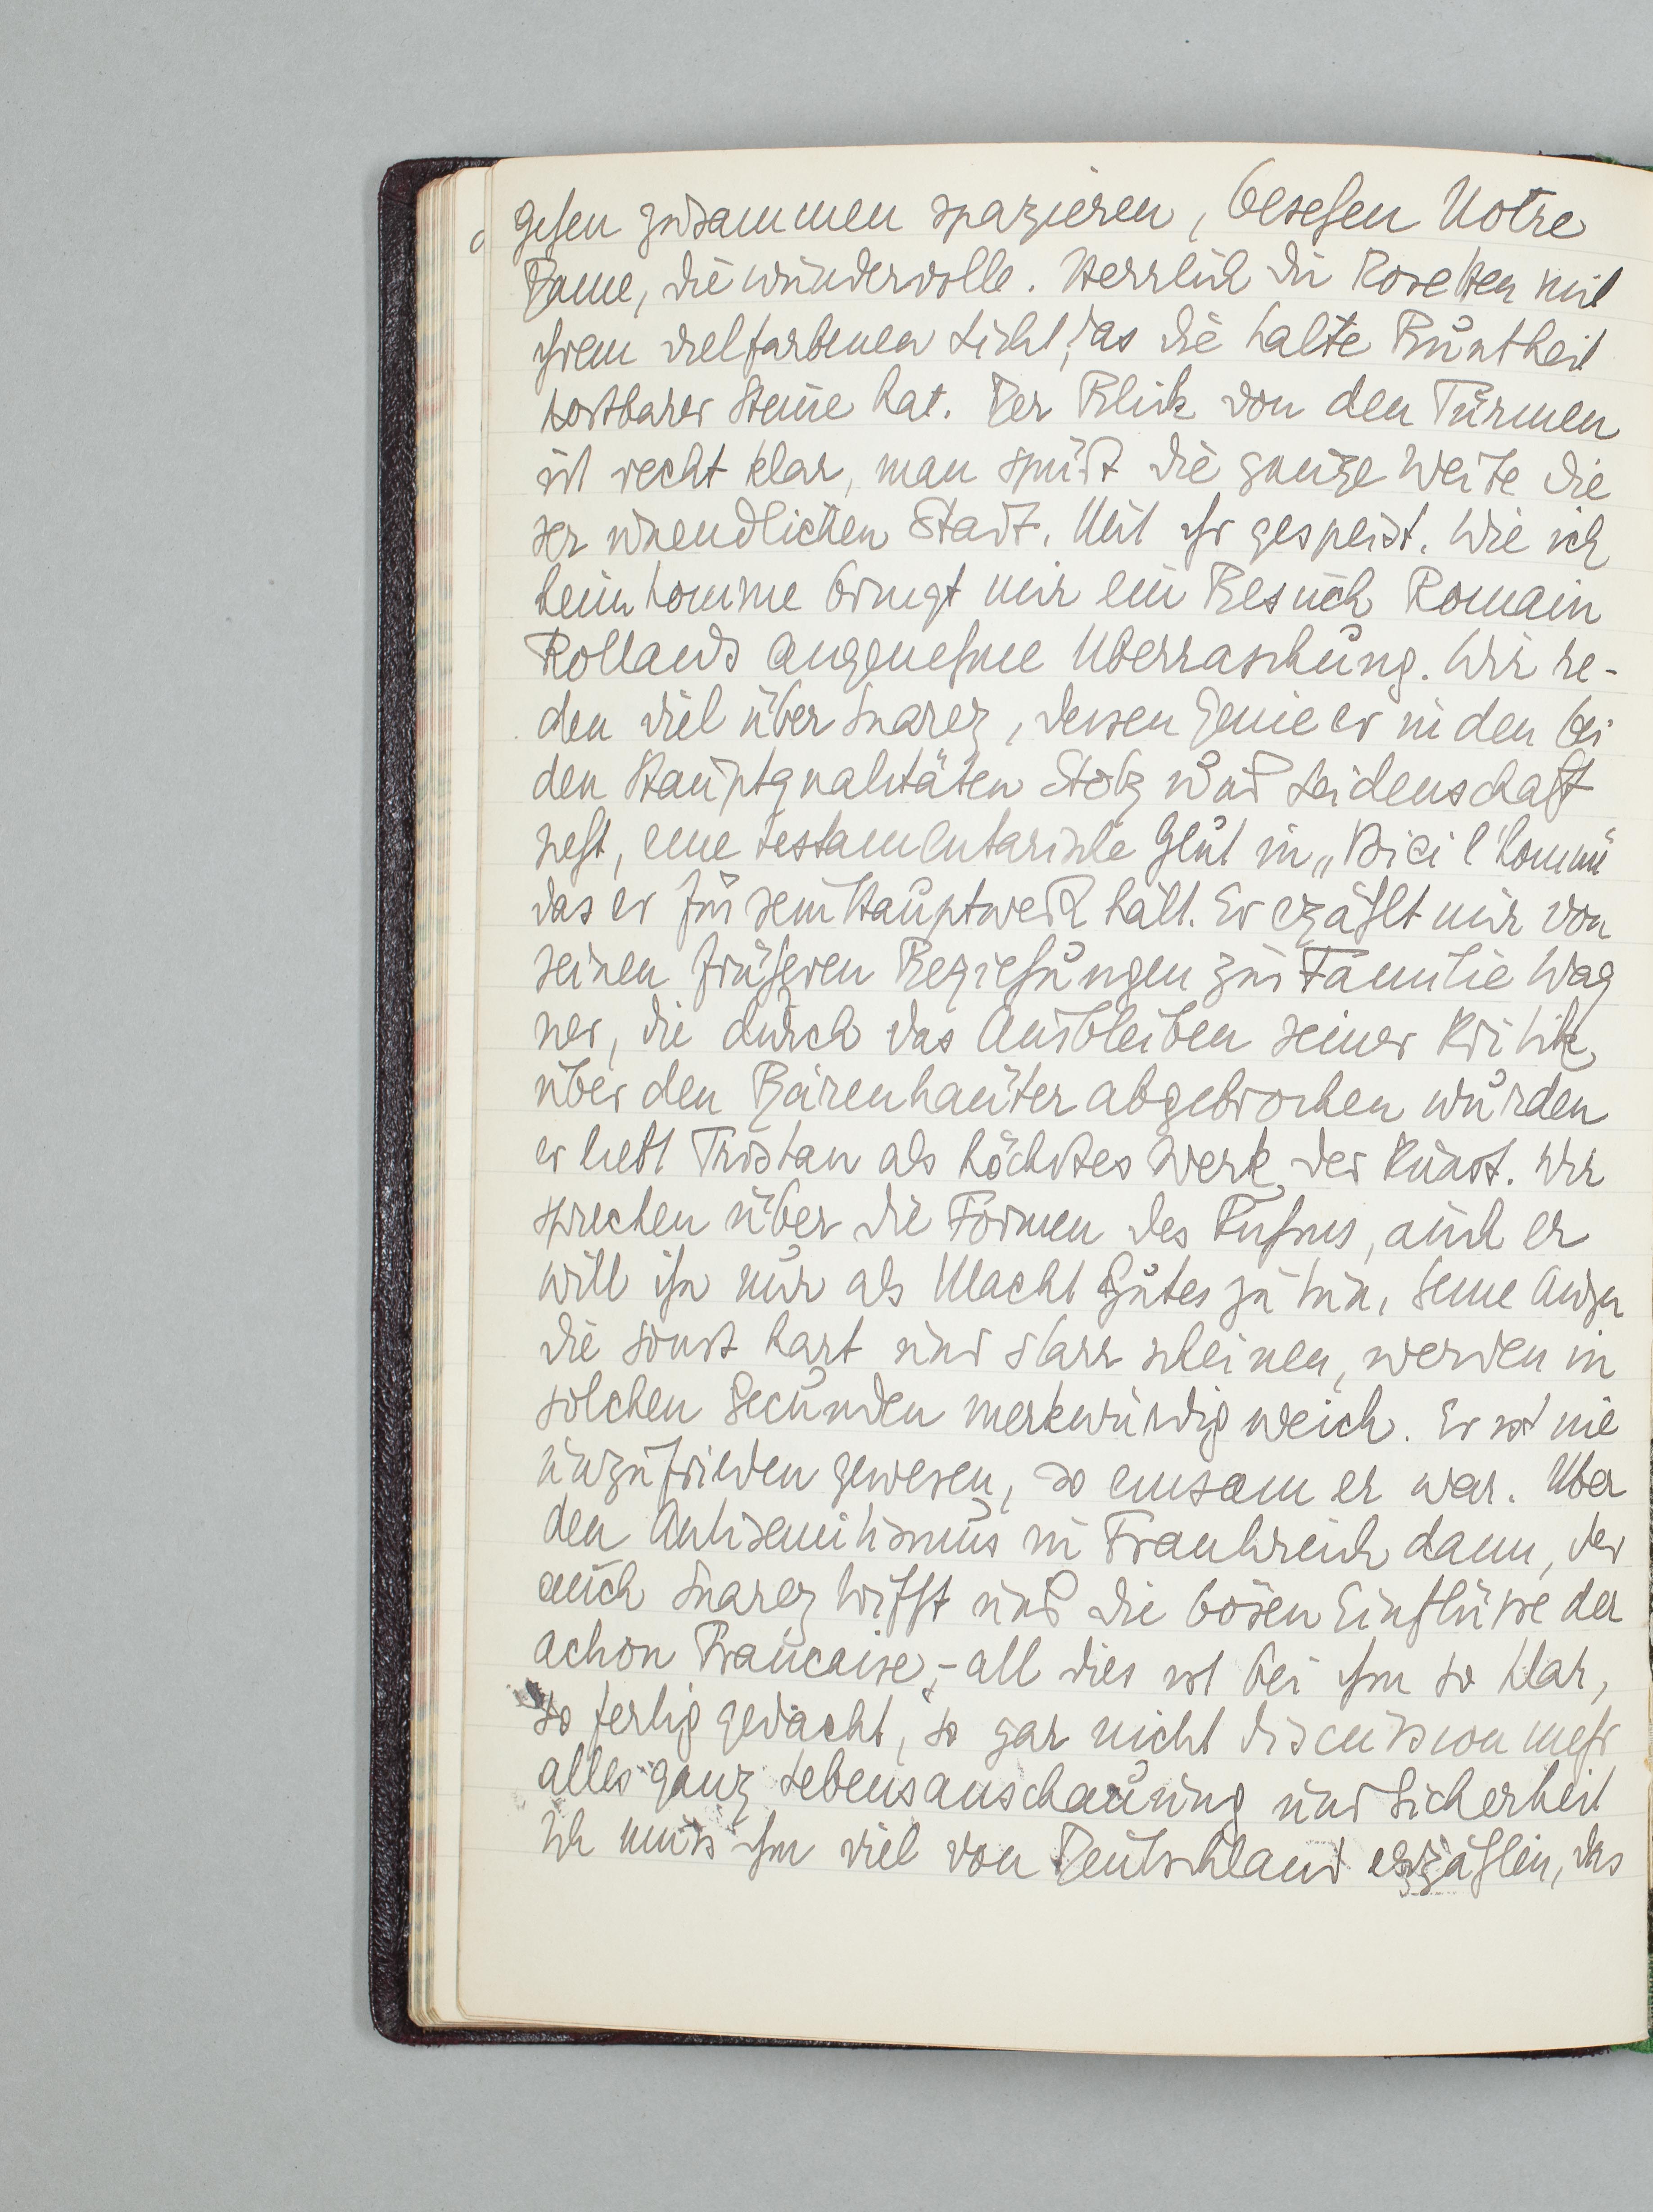 gehen zusammen spazieren, besehen Notre
Dame, die wundervolle. Herrlich die Rosetten mit
ihrem vielfarbenen Licht, das die kalte Buntheit
kostbarer Steine hat. Der Blick von den Türmen
ist recht klar, man spürt die ganze Weite die
ser unendlichen Stadt. Mit ihr gespeist. Wie ich
heimkomme bringt mir ein Besuch Romain
Rollands angenehme Überraschung. Wir re-
den viel über Suarez, dessen Genie er in den bei
den Hauptqualitäten Stolz und Leidenschaft
sieht, eine testamentarische Glut in „Voici l'homme"
das er für sein Hauptwerk hält. Er erzählt mir von
seinen früheren Beziehungen zur Familie Wag
ner, die durch das Ausbleiben seiner Kritik
über den Bärenhäuter abgebrochen wurden
er liebt Tristan als höchstes Werk der Kunst. Wir
sprechen über die Formen des Ruhms, auch er
will ihn nur als Macht Gutes zu tun. Seine Augen
die sonst hart und starr scheinen, werden in
solchen Secunden merkwürdig weich. Er ist nie
unzufrieden gewesen, so einsam er war. Über
den Antisemitismus in Frankreich dann, der
auch Suarez trifft und die bösen Einflüsse der
action Francaise, – all dies ist bei ihm so klar,
so fertig gedacht, so gar nicht discussion mehr
alles ganz Lebensanschauung und Sicherheit
Ich muss ihm viel von Deutschland erzählen, das